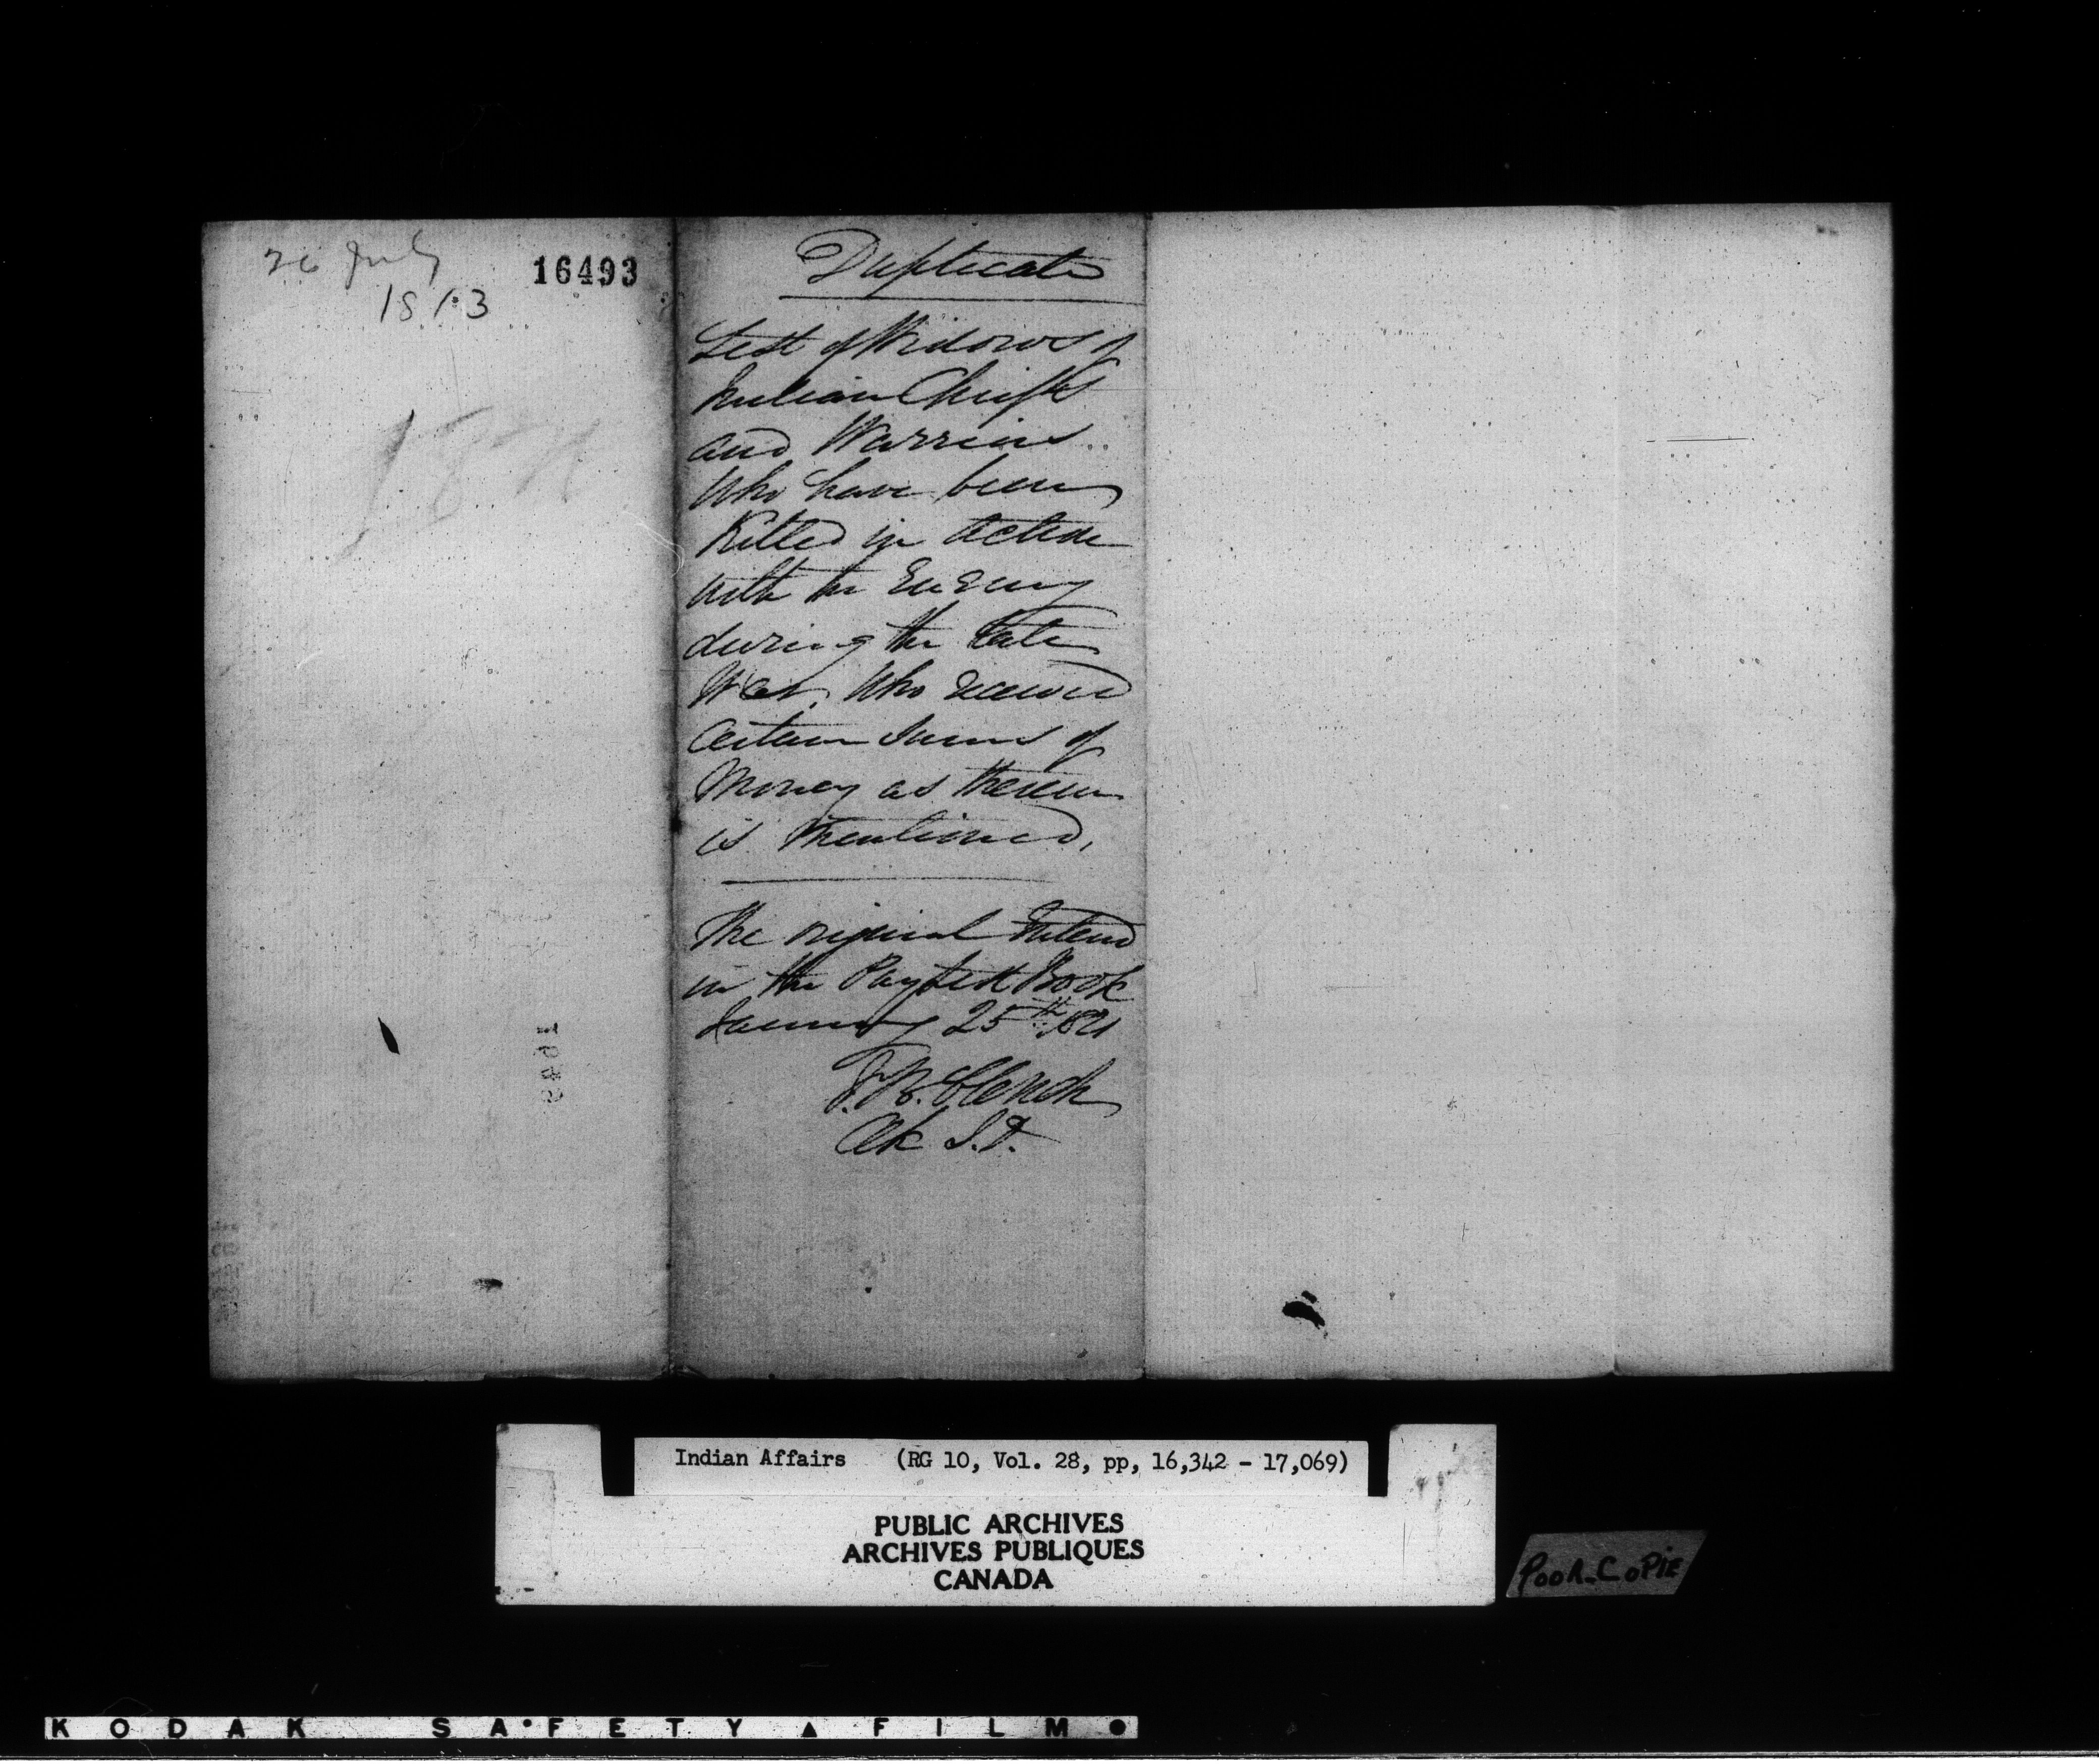 26 July
1813
16493
Duplicate
List of Widows of
Indian Chiefs
and Warriors
Who have been
Killed in Action
with the Enemy
during the late
War, Who received
Certain Sums of
Money as therein
is Mentioned,
The original Entered
in the Paylist Book
January 25th 1821
J.B. Clench
Clk I.D.
Indian Affairs (RG 10, Vol. 28, pp, 16,342 - 17,069)
PUBLIC ARCHIVES
ARCHIVES PUBLIQUES
CANADA
POOR COPIE
KODAK SAFETY FILM